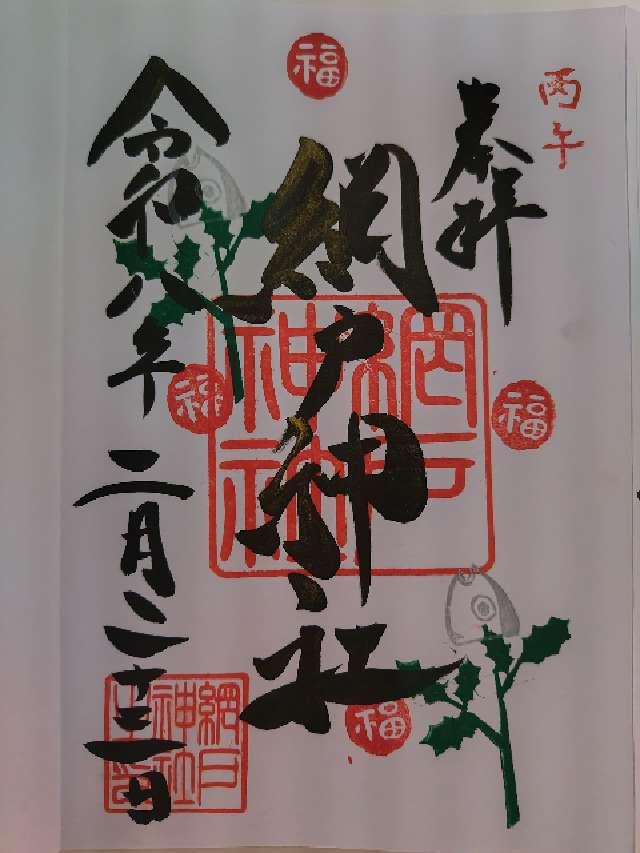 丙午
奉拝
福
網戸神社
網戸神社
福
福
福
令和八年
二月二十二日
網戸神社之印